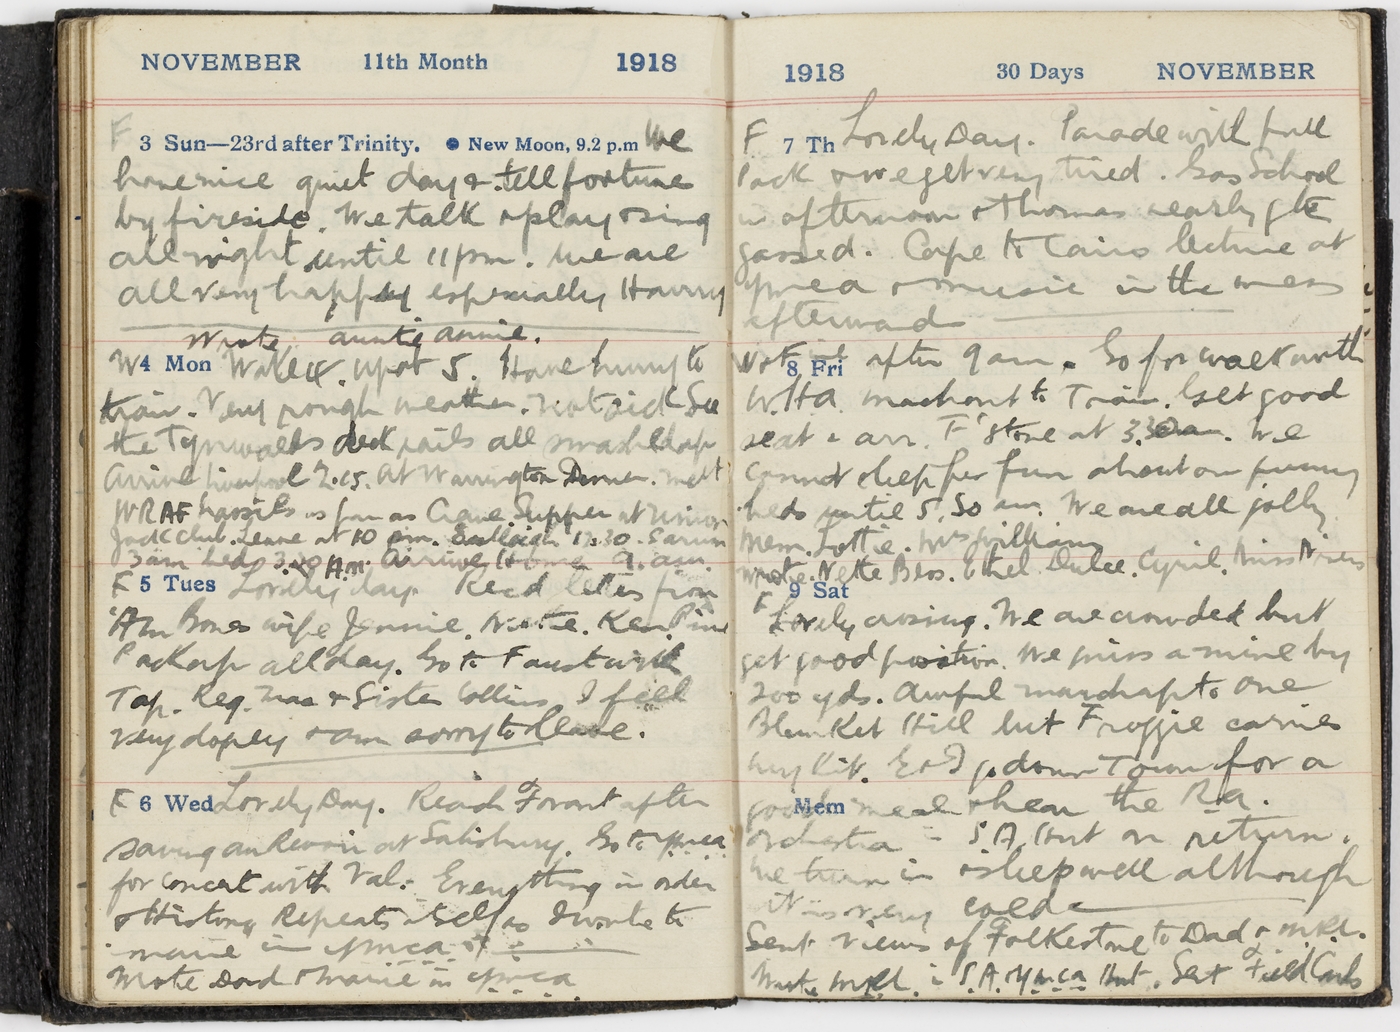 NOVEMBER 11th Month 1918
F 3 Sun—23rd after Trinity. ● New Moon, 9.2 p.m We
have nice quiet day & tell fortunes
by fireside. We talk & play & sing
all night until 11 pm. We are
all very happy especially Harry
Wrote auntie annie.
W 4 Mon Wake up at 5. Have hurry to
train. Very rough weather. Not sick See
the Tynwalds deck rails all smashed up
Arrive Liverpool 2.15. At Warrington Dinner. meet
WRAF as far as Crewe. Supper at Union
Jack Club. Leave at 10 pm. Eastleigh 12.30. Sarum
3 am bed 3.20 Am. Arrive Home 9. am.
F 5 Tues Lovely day. Recd letter from
wife Jennie. Nettie. Ken.
Pack up all day. Go to Faust with
Tap. Reg. & Sister Collins I feel
very dopey & am sorry to leave.
F 6 Wed Lovely Day. Reach Fovant after
saying au Revoir at Salisbury. Go to Ymca
for concert with Val. Everything in order
& History Repeats itself as I wrote to
in Ymca
Wrote Dad & in Ymca
1918 30 Days NOVEMBER
F 7 Th Lovely Day. Parade with full
Pack & we get very tired. Gas School
in afternoon & Thomas nearly gets
gassed. Cape to Cairo lecture at
Ymca & music in the mess
afterward
8 Fri after 9 am. Go for walk with
W.HA. march out to Train. Get good
seat & arr. F'stone at 3.30 am. We
cannot sleep for fun about our funny
beds until 5.50 am. We are all jolly
Mem. Lottie. Mrs Williams
wrote. Nettie Bros. Ethel. Dulce. Cyril. Miss
9 Sat
F Lovely crossing. We are crowded but
get good position. We miss a mine by
200 yds. Awful march up to one
Blanket Hill but Froggie carries
my Kit. E & I go down Town for a
Mem
good meal & hear the R.a.
Orchestra in S.A. Hut on return.
We turn in & sleep well although
it is very cold
Sent Views of Folkestone to Dad &
Wrote in S.A. Ymca Hut. Sent Field Cards